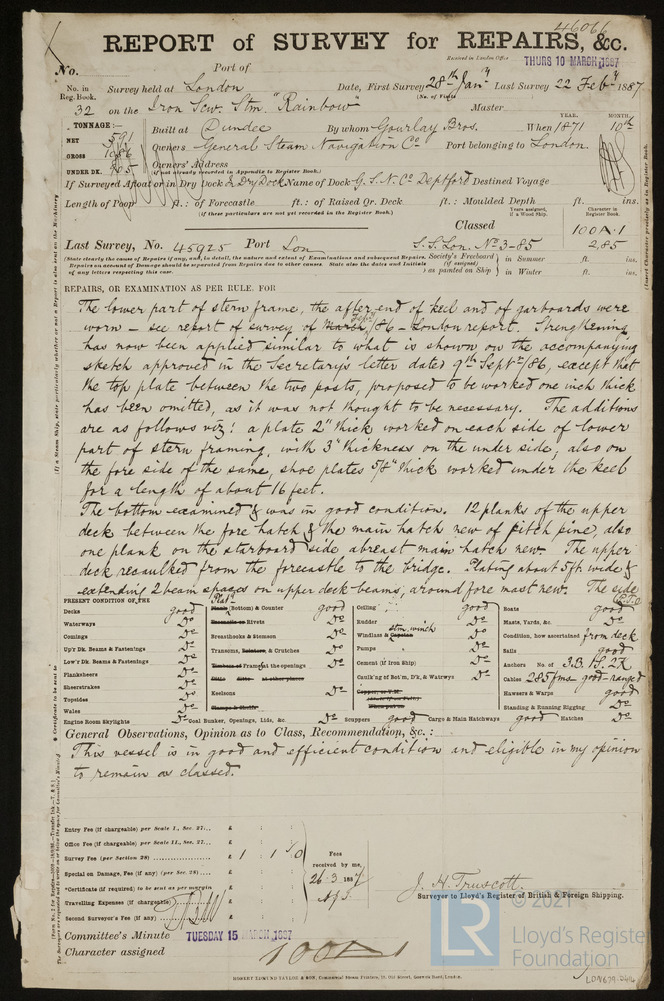 46066
REPORT of SURVEY for REPAIRS, &c.
Received in London Office THURS 10 MARCH 1887
No. Port of
No. in Reg. Book. Survey held at London Date, First Survey 28th Jany Last Survey 22 Feby 1887
(No. of Visits
32 on the Iron Scw. Stm. "Rainbow" Master
TONNAGE:— YEAR. MONTH.
NET 591 Built at Dundee By whom Gourlay Bros. When 1871 10th
GROSS Owners General Steam Navigation Co. Port belonging to London.
UNDER DK. Owners' Address
(if not already recorded in Appendix to Register Book.)
If Surveyed Afloat or in Dry Dock & Dry Dock Name of Dock G.S.N. Co Deptford Destined Voyage
Length of Poop ft.: of Forecastle ft.: of Raised Qr. Deck ft.: Moulded Depth ft. ins.
(if these particulars are not yet recorded in the Register Book.) Years assigned, if a Wood Ship. Character in Register Book.
Classed 100A.1
Last Survey, No. 45925 Port Lon S.S. Lon. No. 3-85 2,85
(State clearly the causes of Repairs if any, and, in detail, the nature and extent of Examinations and subsequent Repairs. Society's Freeboard (if assigned) as painted on Ship in Summer ft. ins.
Repairs on account of Damage should be separated from Repairs due to other causes. State also the dates and Initials of any letters respecting this case. in Winter ft. ins.
REPAIRS, OR EXAMINATION AS PER RULE. FOR
The lower part of stern frame, the after end of keel and of garboards were
worn – see report of survey of March Septr/86 – London report. Strengthening
has now been applied similar to what is shown on the accompanying
sketch approved in the Secretary's letter dated 9th Septr/86, except that
the top plate between the two posts, proposed to be worked one inch thick
has been omitted, as it was not thought to be necessary. The additions
are as follows viz: a plate 2" thick worked on each side of lower
part of stern framing, with 3" thickness on the under side, also on
the fore side of the same, shoe plates 5/8" thick worked under the keel
for a length of about 16 feet.
The bottom examined & was in good condition. 12 planks of the upper
deck between the fore hatch & the main hatch new of pitch pine, also
one plank on the starboard side abreast main hatch new. The upper
deck recaulked from the forecastle to the bridge. Plating about 5ft. wide &
extending 2 beam spaces on upper deck beams, around fore mast new. The side
(P.T.O
PRESENT CONDITION OF THE
Decks good
Waterways Do
Comings Do
Up'r Dk. Beams & Fastenings Do
Low'r Dk. Beams & Fastenings Do
Planksheers Do
Sheerstrakes Do
Topsides Do
Wales Do
Engine Room Skylights Do
Plank Plat (Bottom) & Counter good
Rivets Do
Breasthooks & Stemson Do
Transoms, & Crutches Do
Timbers of Frame at the openings Do
Ditto Ditto at other places
Keelsons Do
Coal Bunker, Openings, Lids, &c. Do
Ceiling good
Rudder Do
Windlass & Capstan stm. winch Do
Pumps Do
Cement (if Iron Ship) Do
Caulk'ng of Bot'm, D'k, & Waterw'ys Do
Scuppers good Cargo & Main Hatchways good Hatches Do
Boats good
Masts, Yards, &c. Do
Condition, how ascertained from deck
Sails good
Anchors No. of 3.B. 1S. 2K
Cables 285 fms – good – ranged
Hawsers & Warps good
Standing & Running Rigging Do
General Observations, Opinion as to Class, Recommendation, &c.:
This vessel is in good and efficient condition and eligible in my opinion
to remain as classed.
Entry Fee (if chargeable) per Scale I., Sec. 27... £ : :
Office Fee (if chargeable) per Scale II., Sec. 27... £ : :
Survey Fee (per Section 28) £ 1 : 1 : 0
Special on Damage, Fee (if any) (per Sec. 28) £ : :
Certificate (if required) to be sent as per margin £ : :
Travelling Expenses (if chargeable) £ : :
Second Surveyor's Fee (if any) £ : :
Fees received by me,
26.3.1887
J. H. Truscott.
Surveyor to Lloyd's Register of British & Foreign Shipping.
Committee's Minute TUESDAY 15 MARCH, 1887
Character assigned 100A1
ROBERT EDMUND TAYLOR & SON
© 2021
LR
Lloyd's Register
Foundation